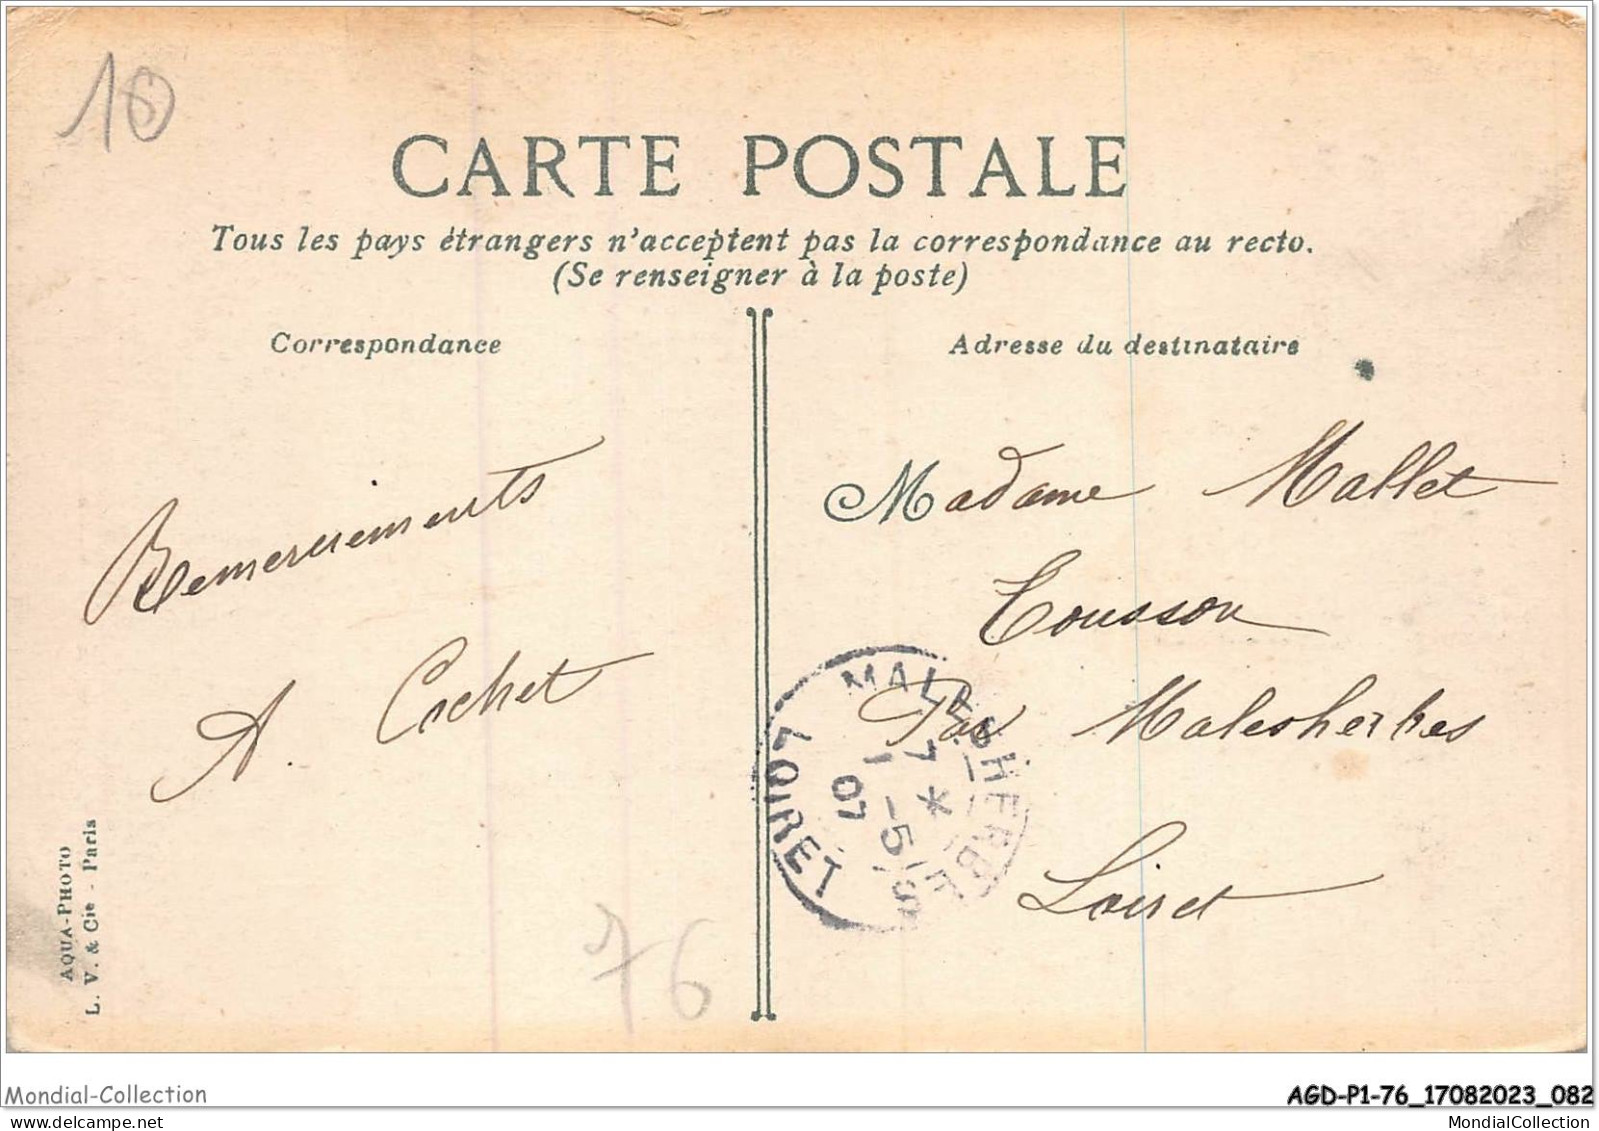 10
CARTE POSTALE
Tous les pays étrangers n'acceptent pas la correspondance au recto.
(Se renseigner à la poste)
Correspondance
Remerciements
A. Cochet
AQUA-PHOTO
L. V. & Cie - Paris
76
Adresse du destinataire
Madame Mallet
Tousson
Par Malesherbes
Loiret
MALESHERBES
7 *
1 -5
07
LOIRET
Mondial-Collection
AGD-P1-76_17082023_082
MondialCollection